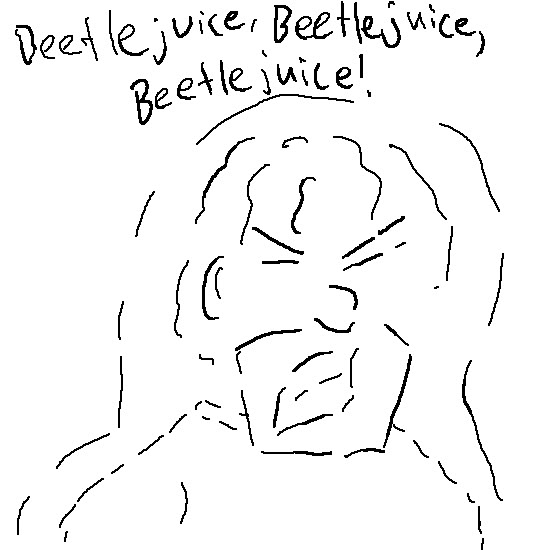 Beetlejuice, Beetlejuice,
Beetlejuice!